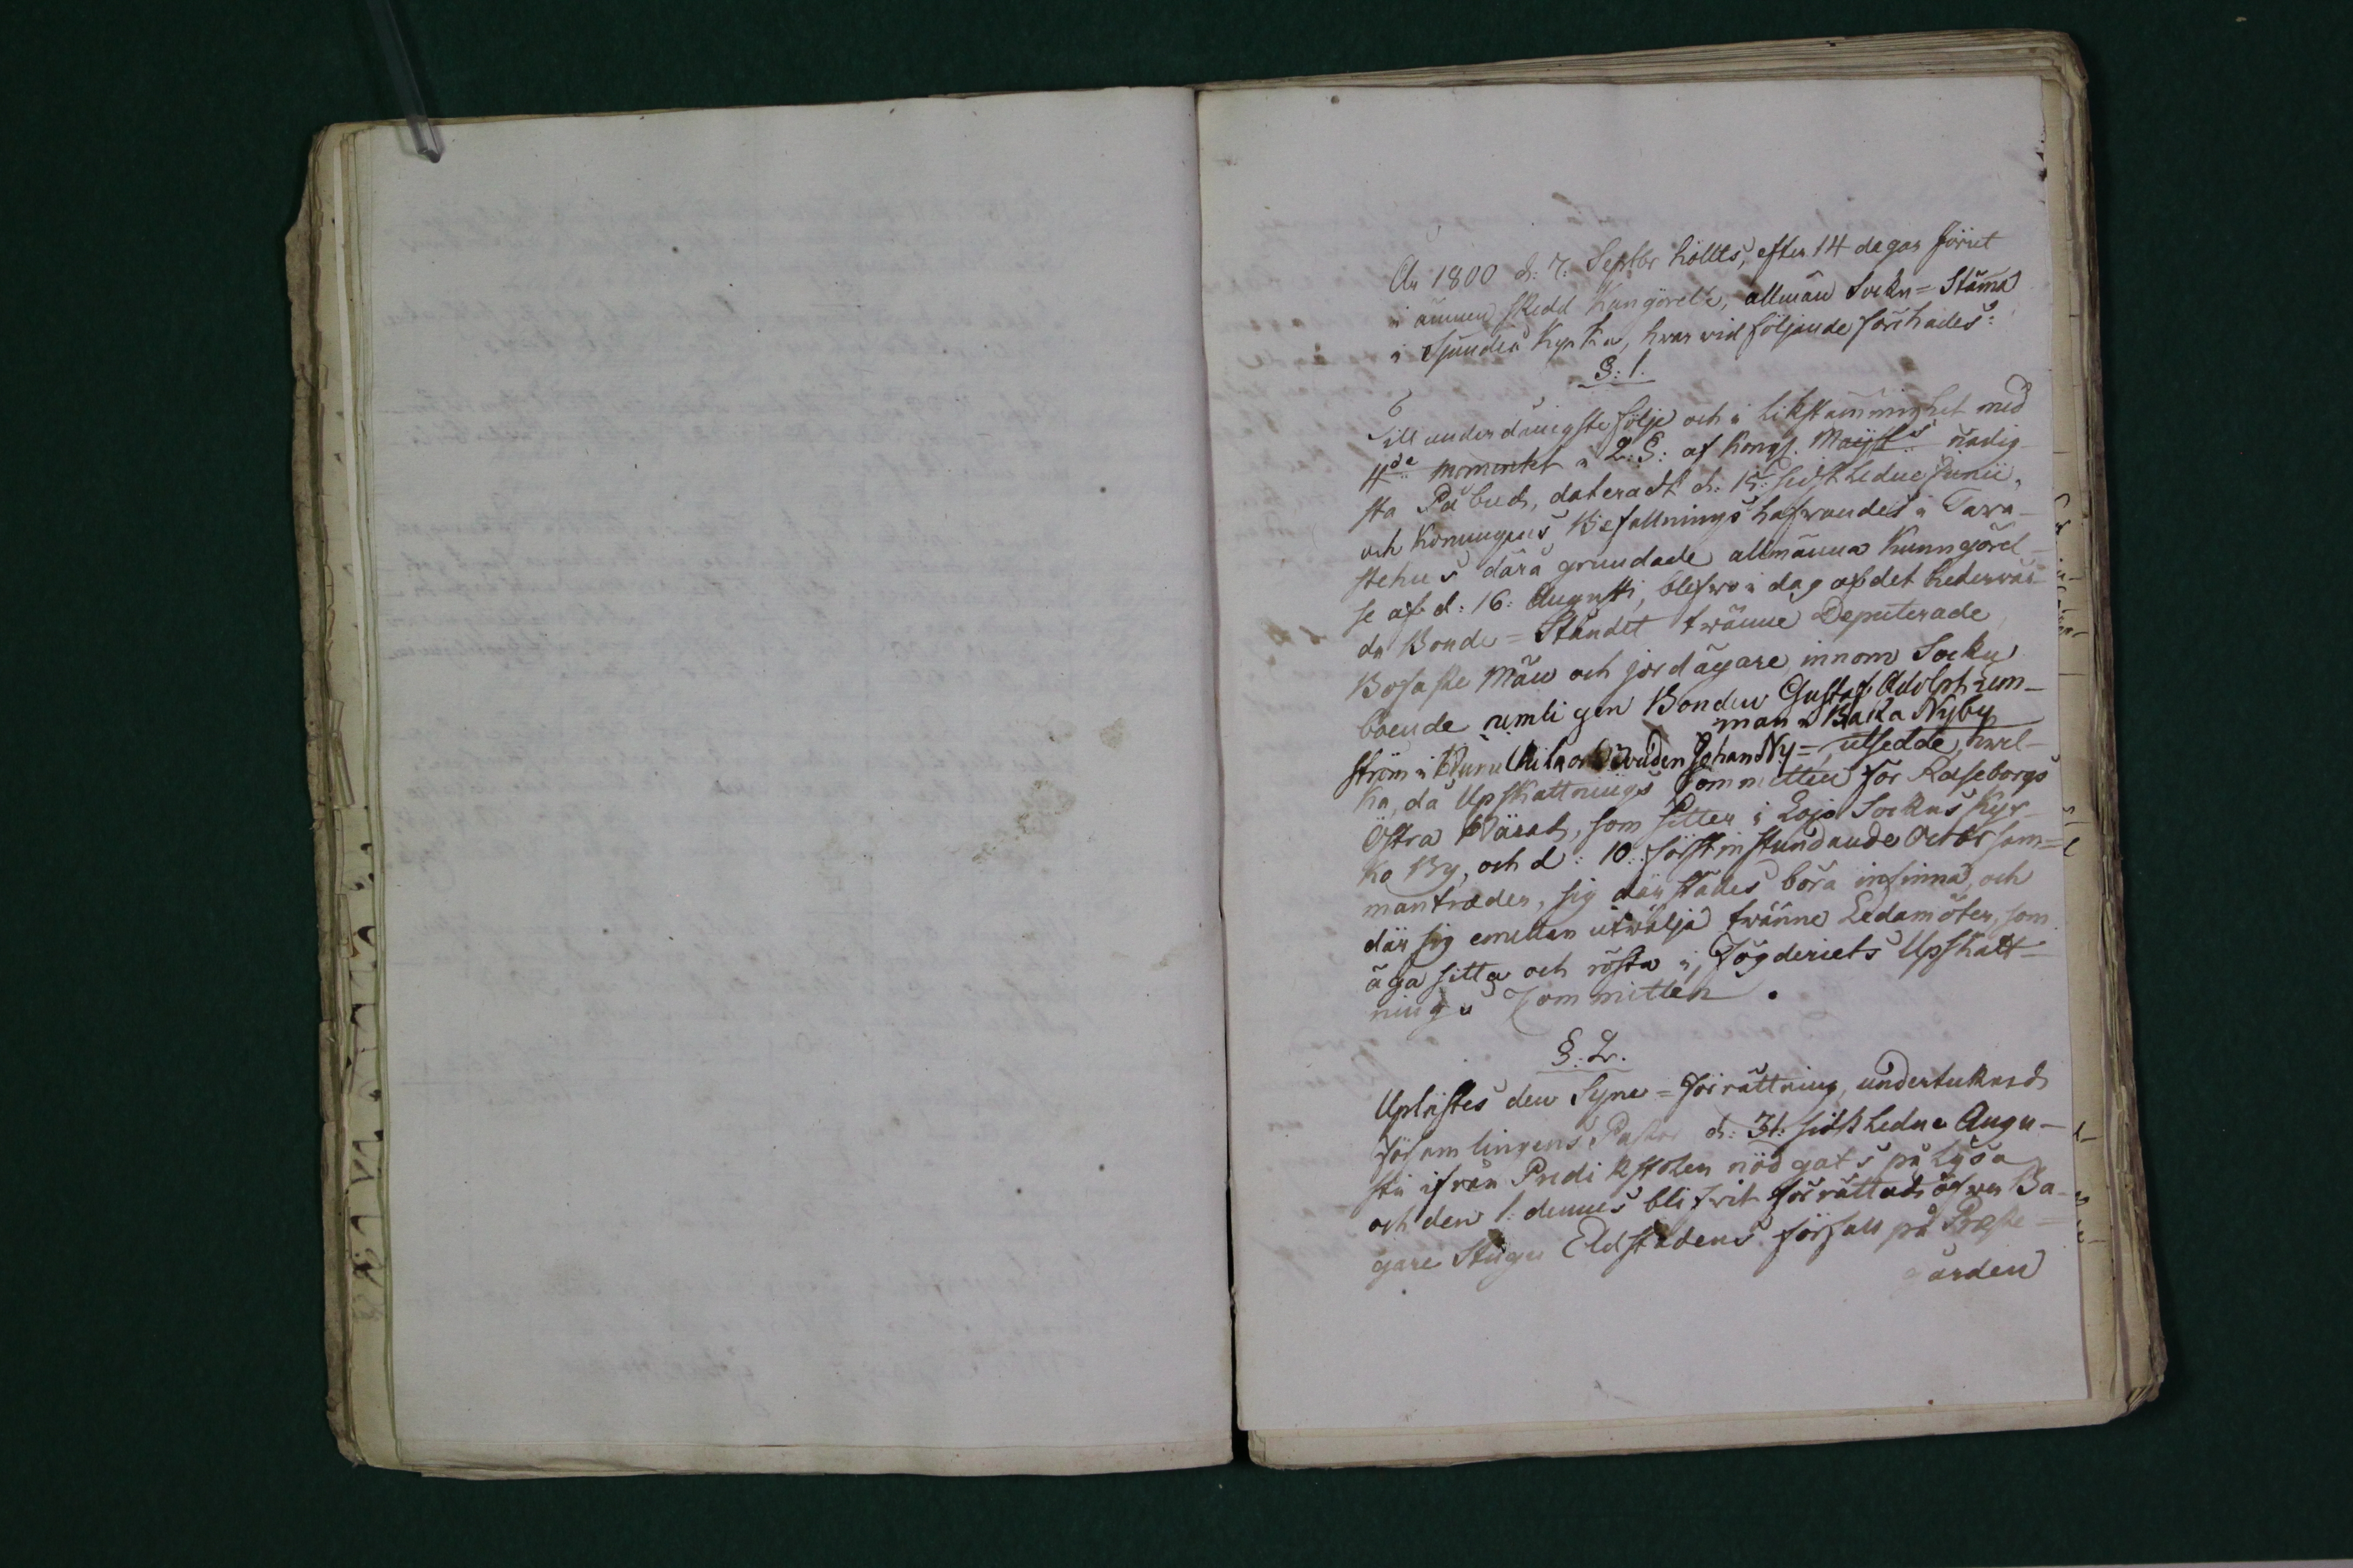 År 1800 d: 7. Septbr höllts, efter 14 dagar förut
i ämnen skedd Kungörelse, allmän Sockn=Stäma
i Sjundeå Kyrka, hwar vid följande förehades:
§: 1.
Till underdånigste följe och i likstämmighet med
4de momentet i 2: §: af Kongl. Maijsts nådig-
sta Påbud, dateradt d: 15: sidstledne Junii,
och Konungens Befallningshafwandes i Tawa-
stehus därå grundade allmänna Kunngörel-
se af d: 16: Augusti, blefwo i dag af det hederwär-
da Bonde=Ståndet twänne Deputerade
Bofaste Män och jordägare innom Sockn
boende nemligen Bonden Gustaf Adolph
man i Backa Nyby
ström i Bonden Johan Ny= utsedde, hwil-
ka, då Upskattnings Committen för Raseborgs
Östra Härad, som sitter i Lojo Sockns Kyr-
ko By, och d: 10: förstinstundande Octobr sam=
manträder, sig därstädes böra infinna, och
där sig emellan utwälja twänne Ledamöter, som
äga sitta och rösta i Fögderiets Upskatt-
nings Committen.
§. 2.
Uplästes den Syne=Förrättning, undertecknad
Församlingens Pastor d: 31: sidstledne Augu-
sti ifrån Predikstolen nödgats pålysa
och den 1: dennes blifwit förrättad öfwer Ba-
gare Stugu Eldstadens förfall på Præste=
gården